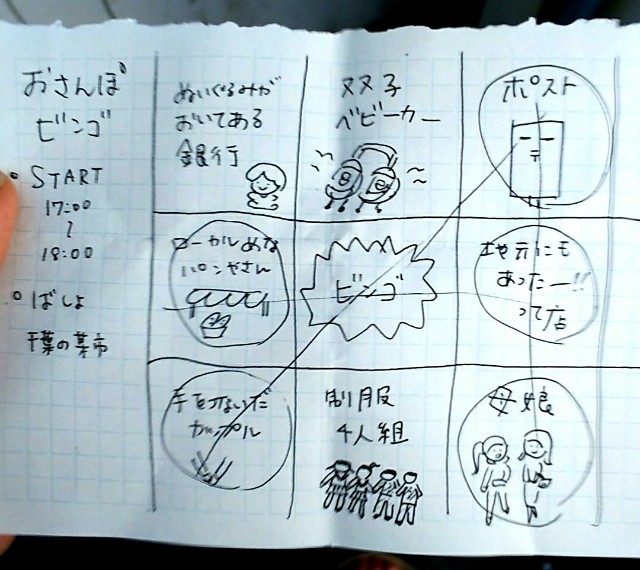 おさんぽ
ビンゴ
START
17:00
~
18:00
ばしょ
千葉の某市
ぬいぐるみが
おいてある
銀行
双子
ベビーカー
ポスト
〒
ローカルめな
パンやさん
ビンゴ
地元にも
あったー!!
って店
手をつないだ
カップル
制服
4人組
母娘